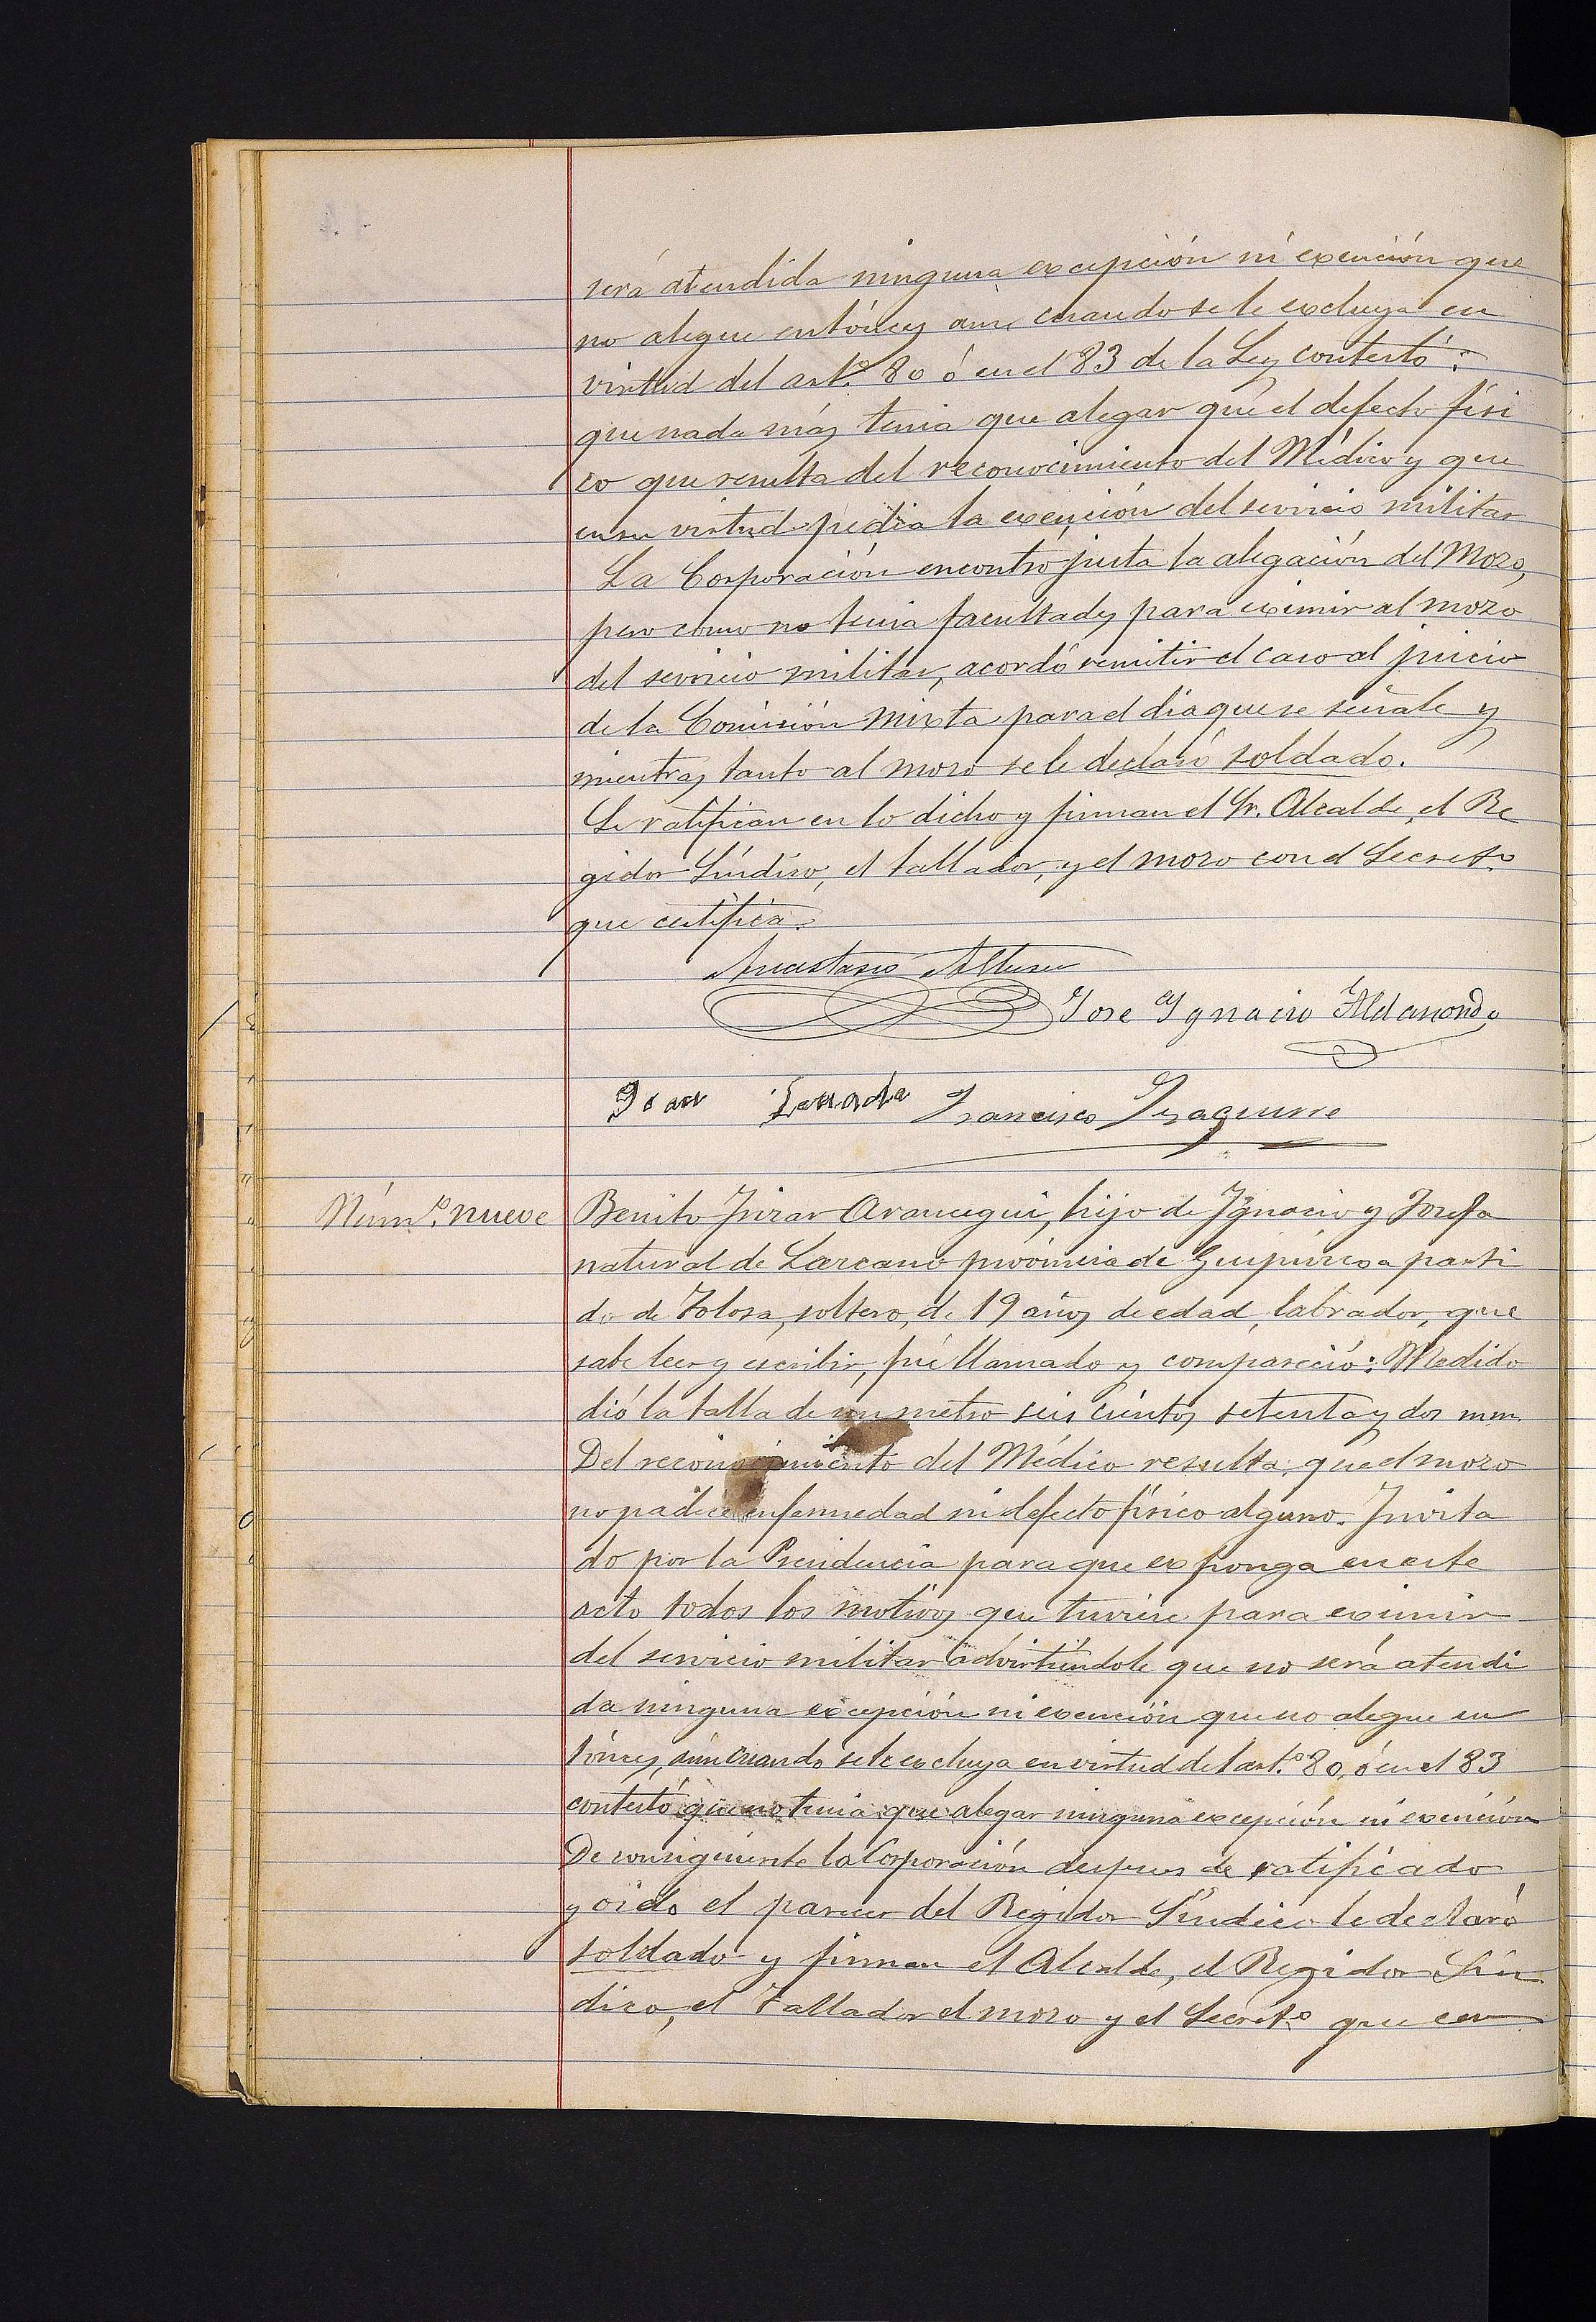 será atendida ninguna excepción ni exención que
no alegue entónces aun cuando se le excluya en
virtud del art.º 80 ó en el 83 de la Ley contestó:
que nada más tenia que alegar que el defecto fisi
co que resulta del reconocimiento del Médico y que
en su virtud pedia la exención del servicio militar
La Corporación encontró justa la alegación del Mozo,
pero como no tenia facultades para eximir al mozo
del servicio militar, acordó remitir el caso al juicio
de la Comisión Mixta para el dia que se señale y
mientras tanto al mozo se le declaró soldado.
Se ratifican en lo dicho y firman el Sr. Alcalde, el Re
gidor Síndico, el tallador, y el mozo con el Secretº
que certifica.
Anastasio Altuna
Jose Ygnacio Aldasondo
Francisco Ysaguirre
Núm.º nueve
Benito Arancegui, hijo de Ygnacio y Josefa
natural de Lazcano provincia de Guipúzcoa parti
do de Tolosa, soltero, de 19 años de edad, labrador, que
sabe leer y escribir, fué llamado y compareció: Medido
dió la talla de un metro seis cientos setenta y dos mm.
Del reconocimiento del Médico resulta, que el mozo
no padece enfermedad ni defecto físico alguno. Invita
do por la Presidencia para que exponga en este
acto todos los motivos que tuviere para eximir
del servicio militar advirtiéndole que no será atendi
da ninguna excepción ni exención que no alegue en
tónces, aún cuando se le excluya en virtud del art.º 80, ó en el 83
contestó que no tenia que alegar ninguna excepción ni exención
De consiguiente la Corporación despues de ratificado
y oido el parecer del Regidor Síndico le declaró
soldado y firman el Alcalde, el Regidor Sín
dico, el Tallador el mozo y el Secretº que cer